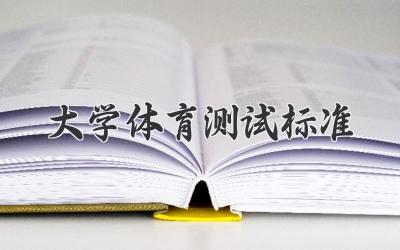 大学体育测试标准